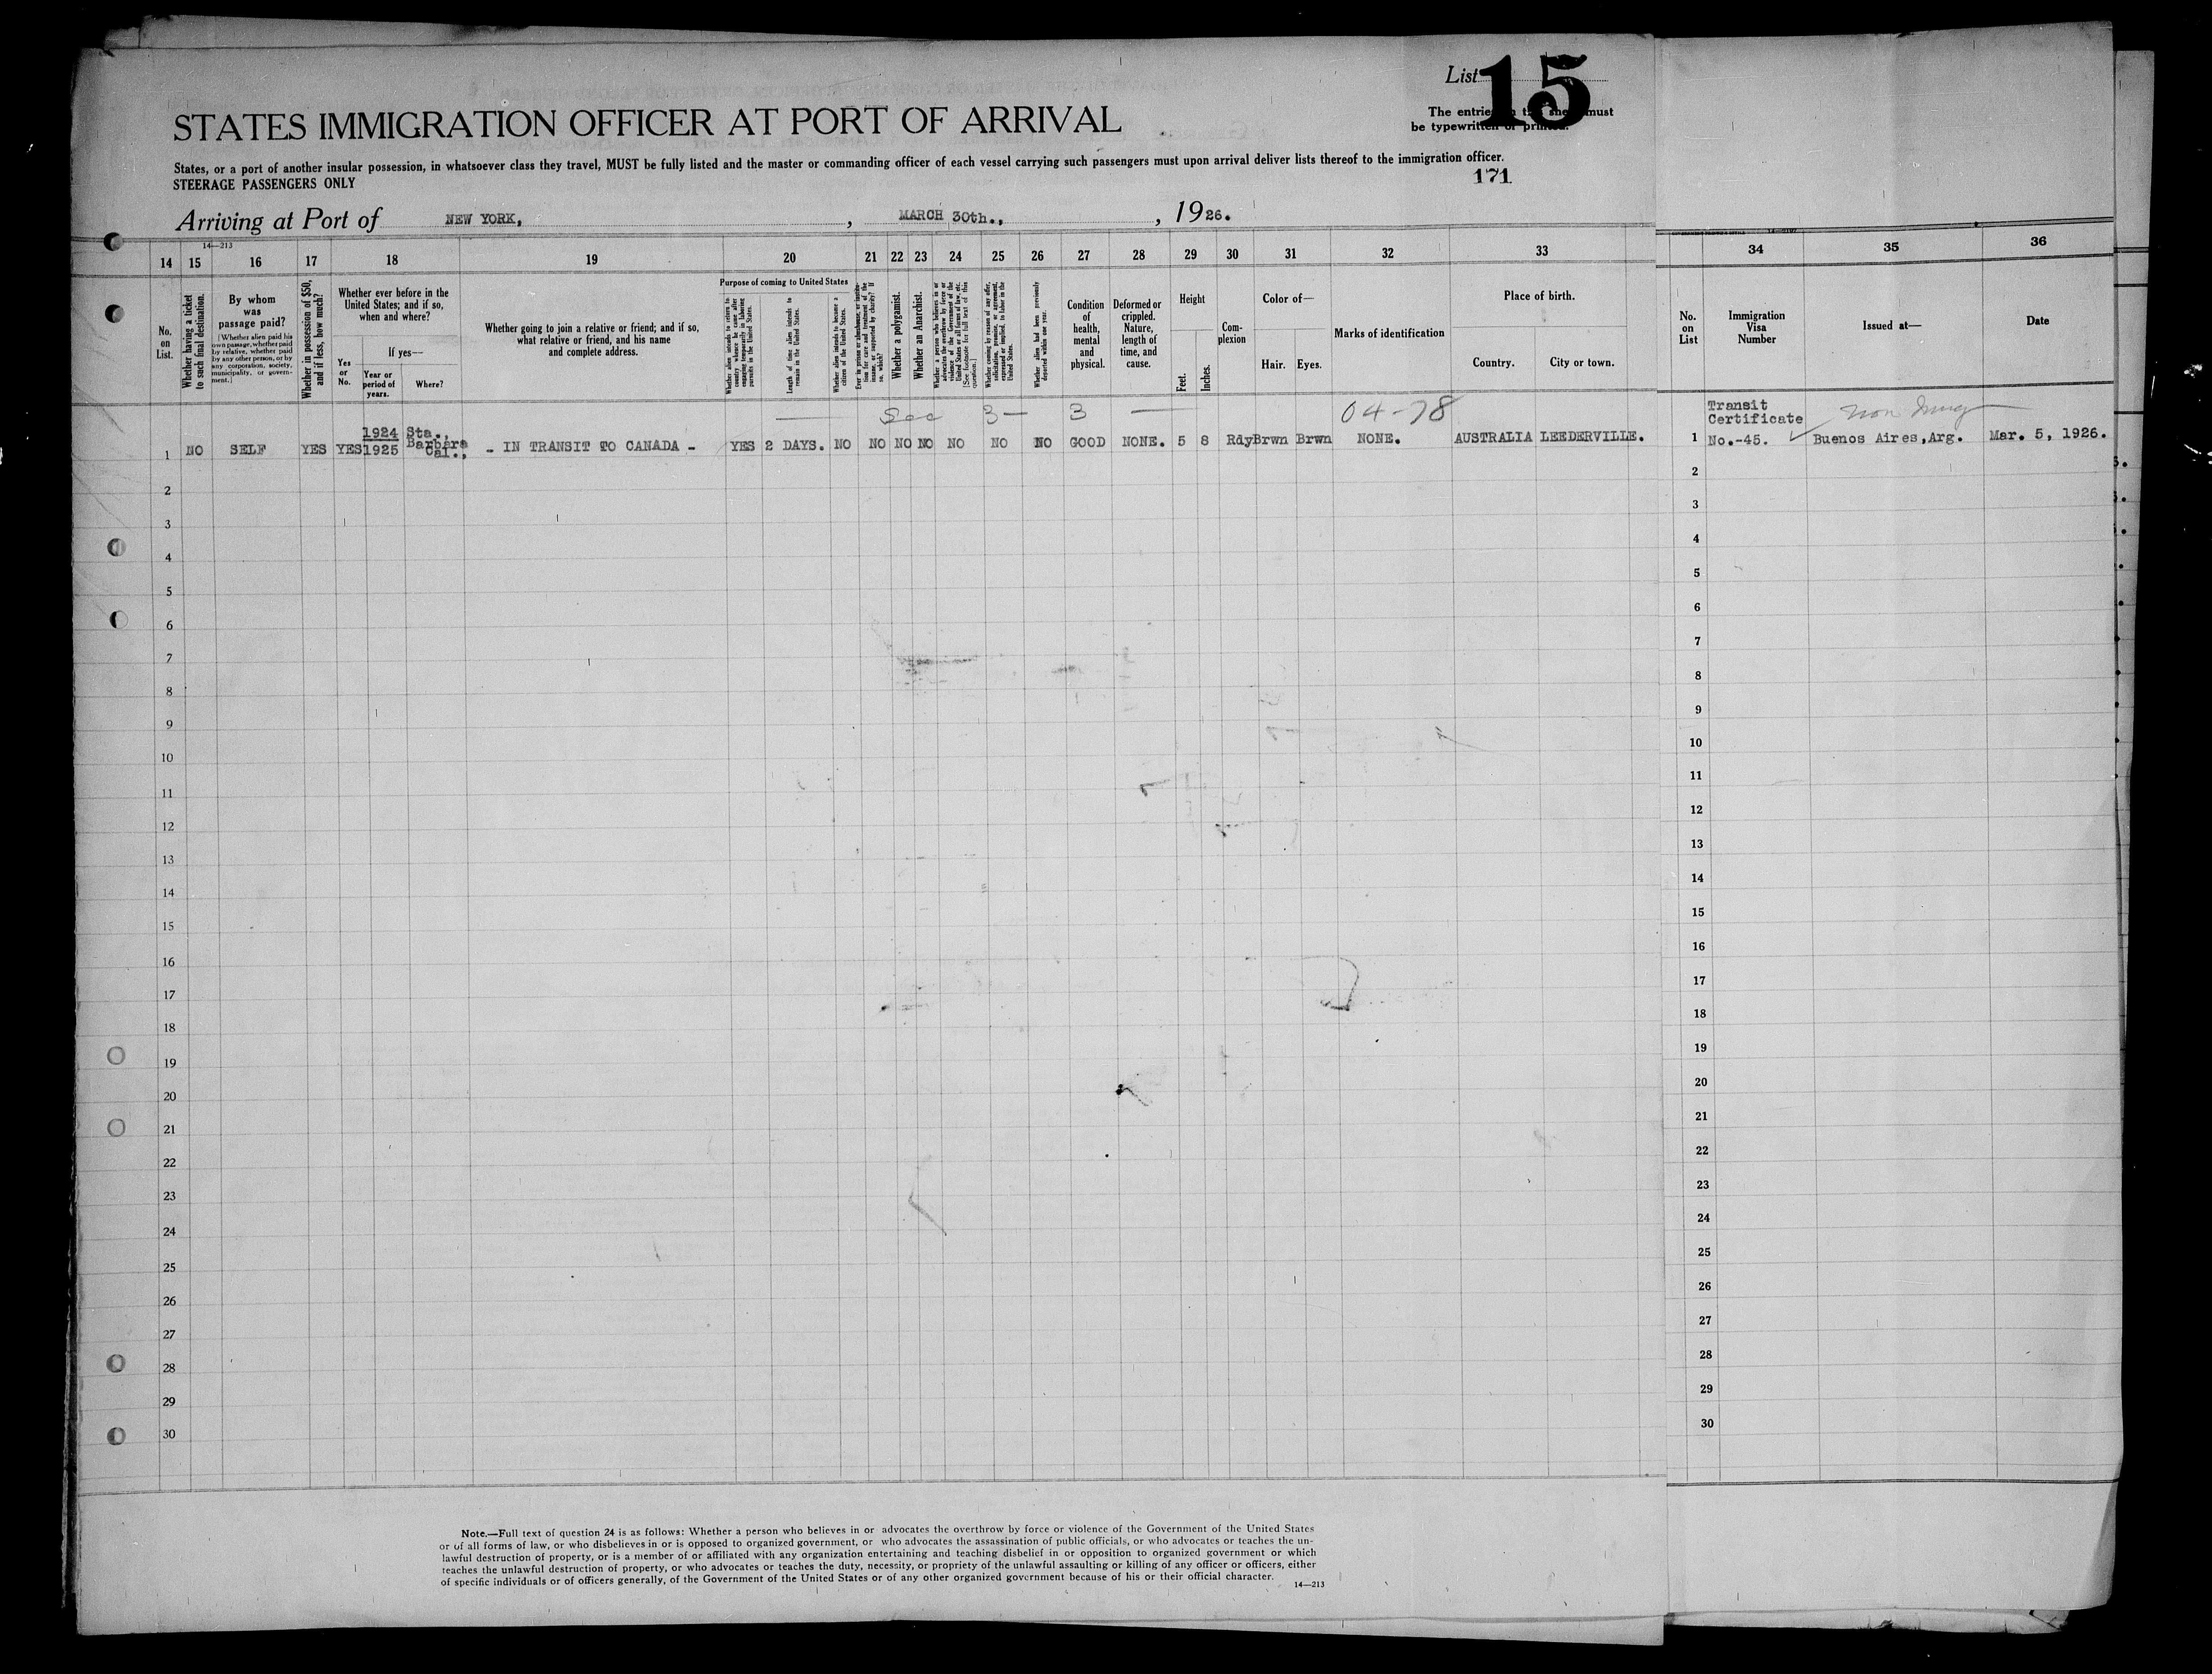 List 15
STATES IMMIGRATION OFFICER AT PORT OF ARRIVAL
The entries must
be typewritten or printed.
States, or a port of another insular possession, in whatsoever class they travel, MUST be fully listed and the master or commanding officer of each vessel carrying such passengers must upon arrival deliver lists thereof to the immigration officer.
STEERAGE PASSENGERS ONLY
171
Arriving at Port of NEW YORK, , MARCH 30th., , 1926.
14—213
14 15 16 17 18 19 20 21 22 23 24 25 26 27 28 29 30 31 32 33 34 35 36
No. on List.
Whether having a ticket to such final destination.
By whom was passage paid?
[Whether alien paid his own passage, whether paid by relative, whether paid by any other person, or by any corporation, society, municipality, or government.]
Whether in possession of $50, and if less, how much?
Whether ever before in the United States; and if so, when and where?
Yes or No.
If yes—
Year or period of years.
Where?
Whether going to join a relative or friend; and if so, what relative or friend, and his name and complete address.
Purpose of coming to United States
Whether alien intends to return to country whence he came after engaging temporarily in laboring pursuits in the United States.
Length of time alien intends to remain in the United States.
Whether alien intends to become a citizen of the United States.
Whether a polygamist.
Whether an Anarchist.
Whether alien had been previously deported within one year.
Condition of health, mental and physical.
Deformed or crippled. Nature, length of time, and cause.
Height
Feet. Inches.
Com-plexion
Color of—
Hair. Eyes.
Marks of identification
Place of birth.
Country. City or town.
No. on List
Immigration Visa Number
Issued at—
Date
3— 3 — 04-78
Transit
Certificate
1 NO SELF YES YES 1924 1925 Sta., Barbara Cal., - IN TRANSIT TO CANADA - YES 2 DAYS. NO NO NO NO NO NO NO GOOD NONE. 5 8 Rdy Brwn Brwn NONE. AUSTRALIA LEEDERVILLE. 1 No.-45. Buenos Aires,Arg. Mar. 5, 1926.
2 2
3 3
4 4
5 5
6 6
7 7
8 8
9 9
10 10
11 11
12 12
13 13
14 14
15 15
16 16
17 17
18 18
19 19
20 20
21 21
22 22
23 23
24 24
25 25
26 26
27 27
28 28
29 29
30 30
Note.—Full text of question 24 is as follows: Whether a person who believes in or advocates the overthrow by force or violence of the Government of the United States
or of all forms of law, or who disbelieves in or is opposed to organized government, or who advocates the assassination of public officials, or who advocates or teaches the un-
lawful destruction of property, or is a member of or affiliated with any organization entertaining and teaching disbelief in or opposition to organized government or which
teaches the unlawful destruction of property, or who advocates or teaches the duty, necessity, or propriety of the unlawful assaulting or killing of any officer or officers, either
of specific individuals or of officers generally, of the Government of the United States or of any other organized government because of his or their official character.
14—213